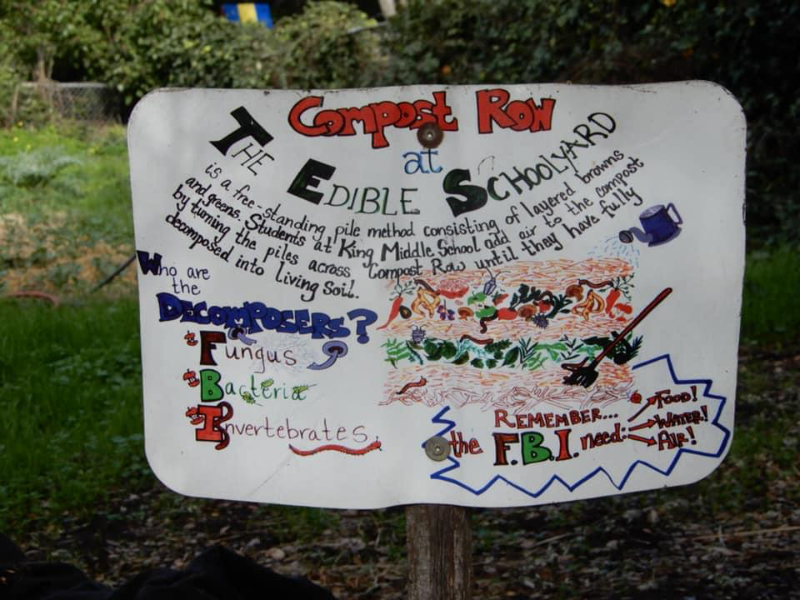 Compost Row
at
The Edible Schoolyard
is a free-standing pile method consisting of layered browns
and greens. Students at King Middle School add air to the compost
by turning the piles across Compost Row until they have fully
decomposed into Living Soil.
Who are
the
Decomposers?
Fungus
Bacteria
Invertebrates
Remember...
the F.B.I. need:
Food!
Water!
Air!